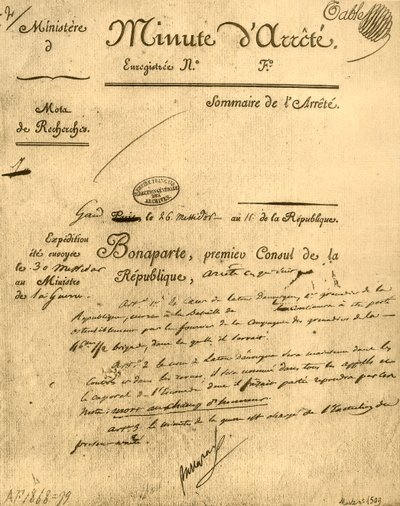 Table
Ministère
d
Minute d'Arrêté.
Enregistrée N.º F.º
Sommaire de l'Arrêté.
Mota
de Recherches.
ARCHIVES
Gand le 26 Messidor au 11 de la République.
Expédition
été envoyée
le 30 Messidor
au Ministre
de la Guerre.
Bonaparte, premier Consul de la
République, arrête ce qui suit
Art. 1er Le Cœur de Latour d'auvergne, 1er grenadier de la
République, à la Bataille de
ostensiblement par le fourrier de la Compagnie des grenadiers de la
46me 1/2 brigade, dans laquelle il servait.
Art. 2 le nom de Latour d'auvergne sera maintenu dans les
Contrôles et dans les revues, il sera nommé dans tous les appels et
le caporal de l'Escouade dont il faisait partie répondra par ces
Mots: mort au champ d'honneur.
Art. 3 le Ministre de la guerre est chargé de l'Exécution du
présent arrêté
AF 1868=79